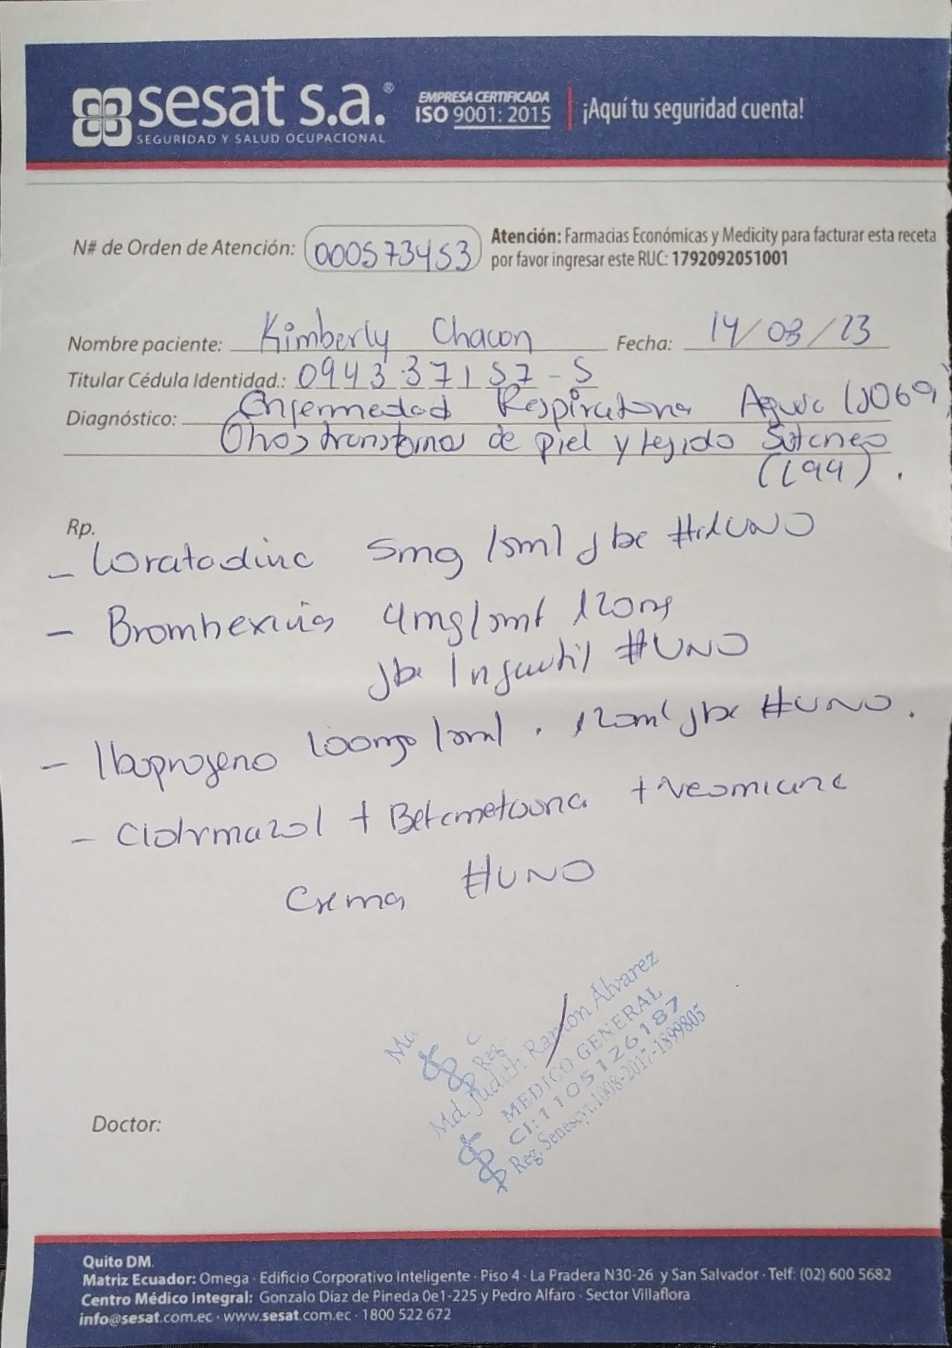 sesat s.a.®
SEGURIDAD Y SALUD OCUPACIONAL
EMPRESA CERTIFICADA
ISO 9001: 2015
¡Aquí tu seguridad cuenta!
N# de Orden de Atención: 000573453
Atención: Farmacias Económicas y Medicity para facturar esta receta
por favor ingresar este RUC: 1792092051001
Nombre paciente: Kimberly Chacon Fecha: 14/03/23
Titular Cédula Identidad.: 094337157-5
Diagnóstico: Enfermedad Respiratoria Aguda (J069)
Otros transtornos de piel y tejido Subcneo
(L99).
Rp.
- Loratadina 5mg/5ml jbe #UNO
- Bromhexina 4mg/5ml 120
jbe Infantil #UNO
- Ibuprofeno 100mg/5ml. 120ml jbe #UNO.
- Clotrmazol + Betametasona + Neomicina
Crema #UNO
Md. Judith Ramón Álvarez
MEDICO GENERAL
CI: 1105126187
Reg. Senescyt: 1008-2017-1899805
Doctor:
Quito DM.
Matriz Ecuador: Omega · Edificio Corporativo Inteligente · Piso 4 · La Pradera N30-26 y San Salvador · Telf: (02) 600 5682
Centro Médico Integral: Gonzalo Díaz de Pineda 0e1-225 y Pedro Alfaro · Sector Villaflora
info@sesat.com.ec · www.sesat.com.ec · 1800 522 672